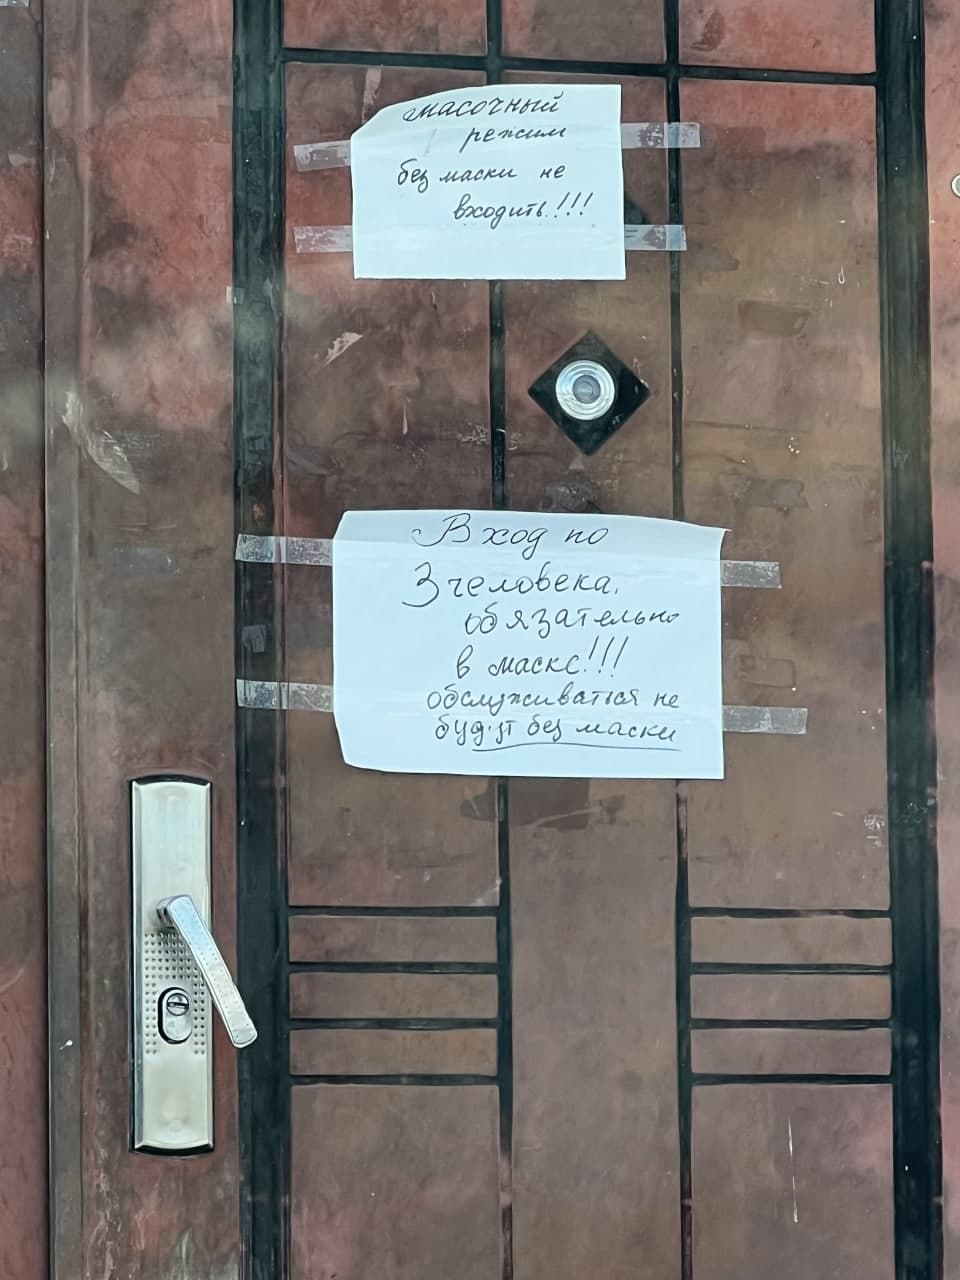 масочный
режим
без маски не
входить!!!
Вход по
3 человека.
обязательно
в маске!!!
обслуживаться не
будут без маски